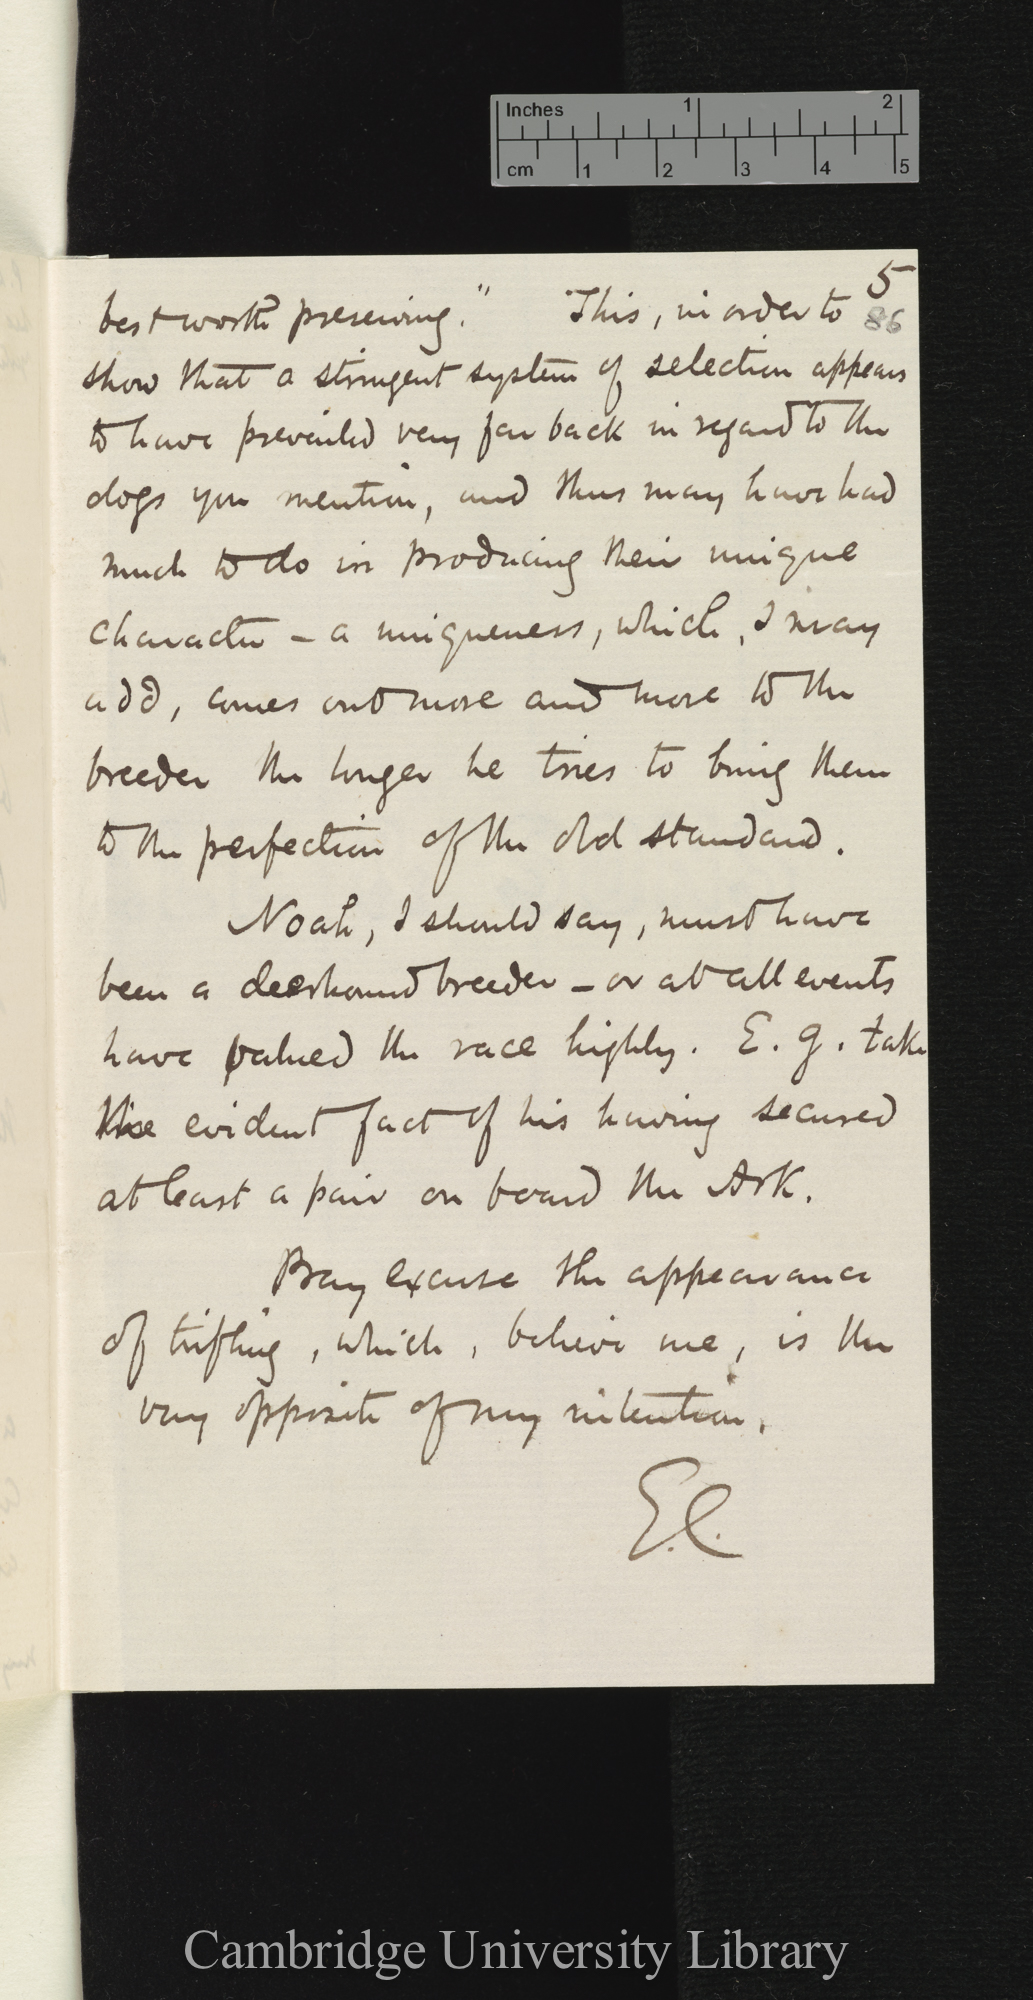 Inches 1 2
cm 1 2 3 4 5
5
best worth preserving." This, in order to 86
show that a stringent system of selection appears
to have prevailed very far back in regard to the
dogs you mention, and thus may have had
much to do in producing their unique
character – a uniqueness, which, I may
add, comes out more and more to the
breeder the longer he tries to bring them
to the perfection of the old standard.
Noah, I should say, must have
been a deerhound breeder – or at all events
have valued the race highly. E. g. take
the evident fact of his having secured
at least a pair on board the Ark.
Pray excuse the appearance
of trifling, which, believe me, is the
very opposite of my intention.
E.C.
Cambridge University Library